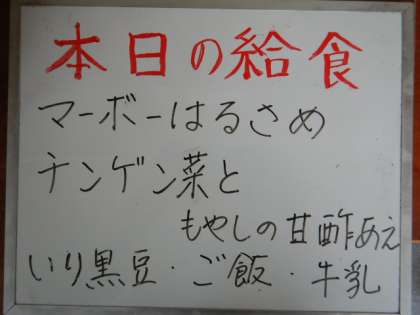 本日の給食
マーボーはるさめ
チンゲン菜と
もやしの甘酢あえ
いり黒豆・ご飯・牛乳